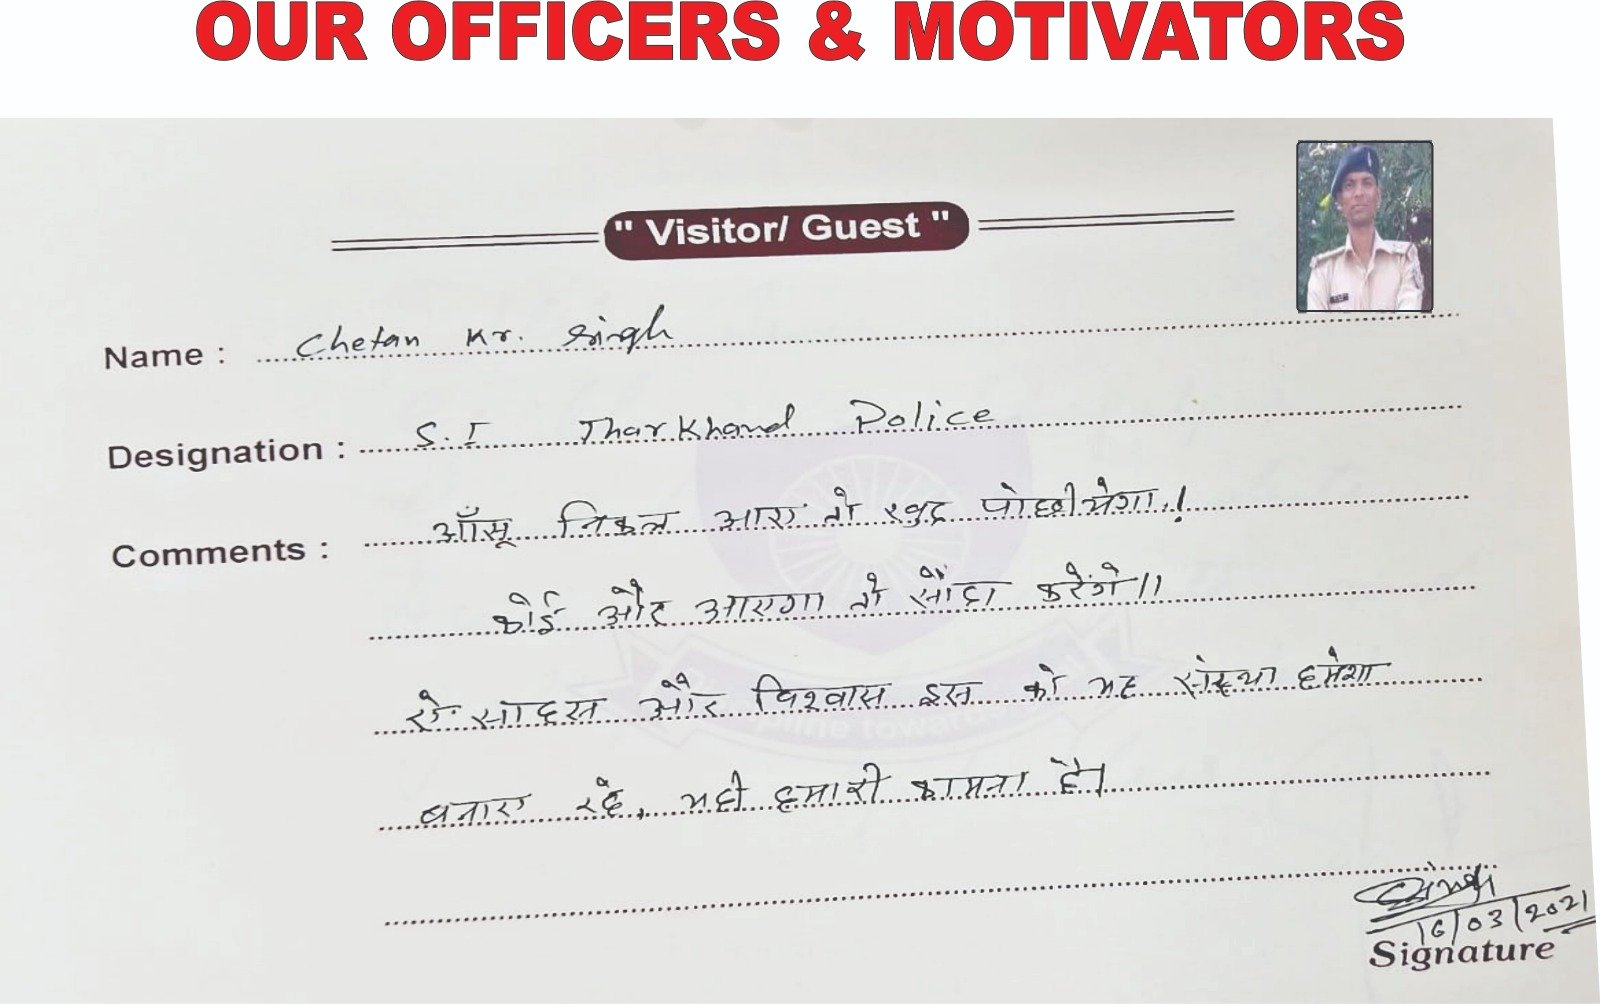 OUR OFFICERS & MOTIVATORS
" Visitor/ Guest "
Name : Chetan Kr. Singh
Designation : S.I Jharkhand Police
Comments : आँसू निकल आए तो खुद पोछीयेगा,!
कोई और आएगा तो सौदा करेंगे।।
ये साहस और विश्वास इस को यह संस्था हमेशा
बनाए रखे, यही हमारी कामना है।
16/03/2021
Signature